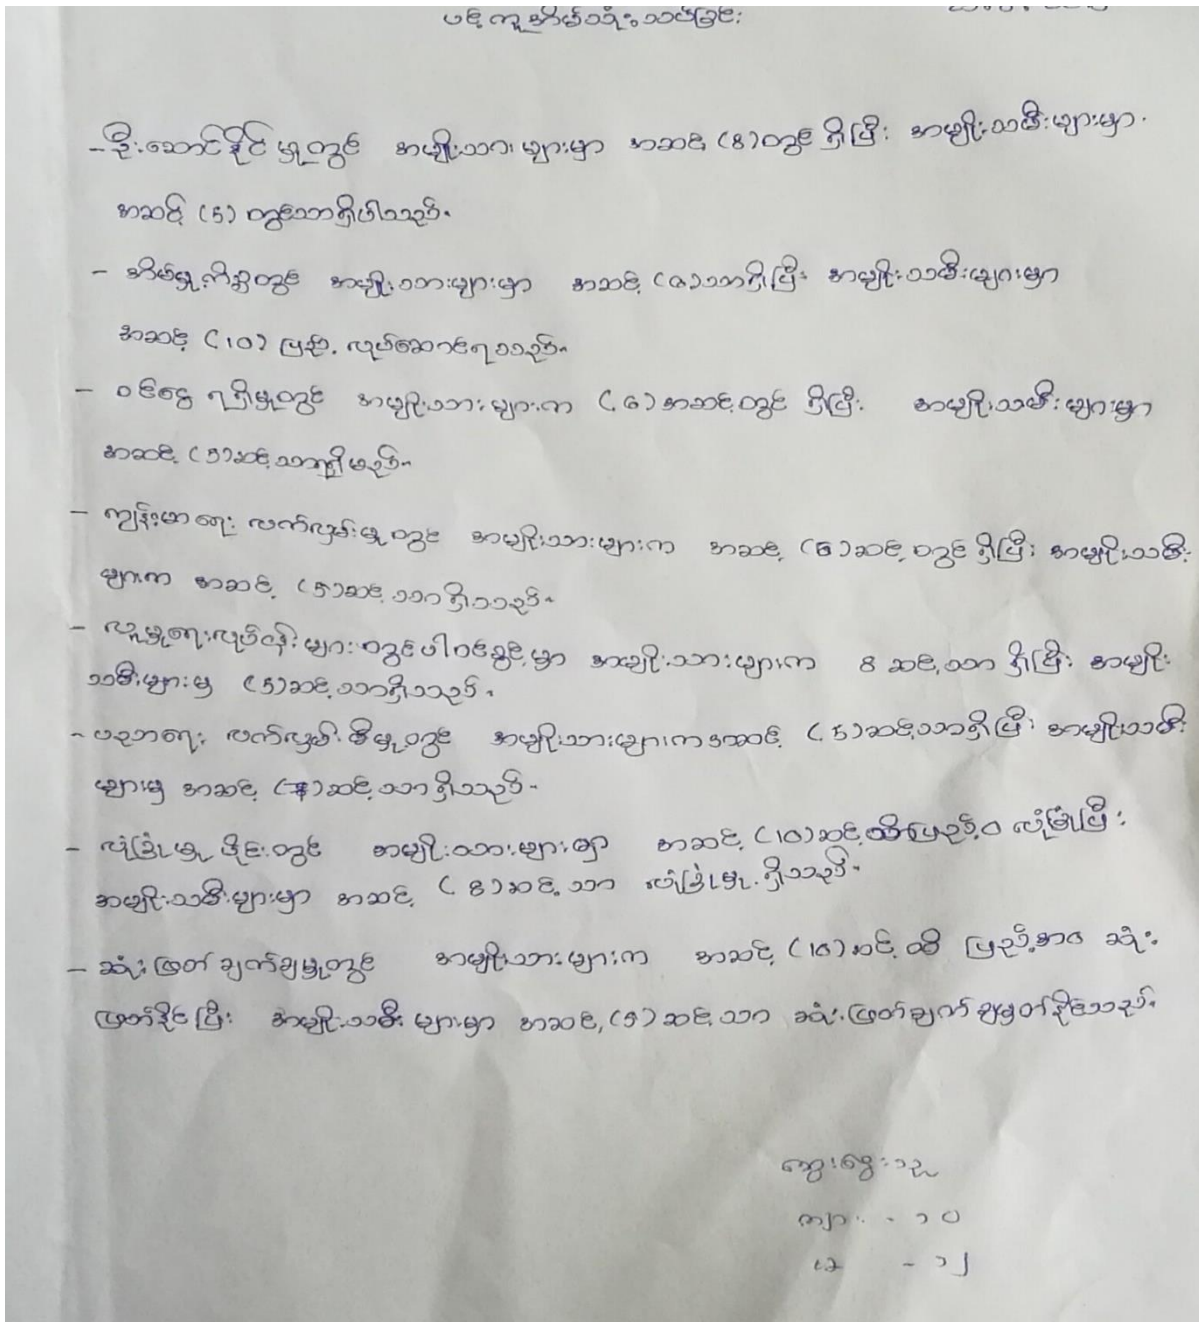 ပင့်ကူအိမ်သုံးသပ်ခြင်း
- ဦးဆောင်နိုင်မှုတွင် အမျိုးသားများမှာ အဆင့် (8) တွင် ရှိပြီး အမျိုးသမီးများမှာ
အဆင့် (5) တွင်သာရှိပါသည်။
- အိမ်မှုကိစ္စတွင် အမျိုးသားများမှာ အဆင့် (၆) သာရှိပြီး အမျိုးသမီးများမှာ
အဆင့် (10) ပြည့် လုပ်ဆောင်ရသည်။
- ဝင်ငွေ ရရှိမှုတွင် အမျိုးသားများက (6) အဆင့်တွင် ရှိပြီး အမျိုးသမီးများမှာ
အဆင့် (5) ဆင့်သာရှိမည်။
- ကျန်းမာရေး လက်လှမ်းမှုတွင် အမျိုးသားများက အဆင့် (6) ဆင့်တွင် ရှိပြီး အမျိုးသမီး
များက အဆင့် (5) ဆင့်သာရှိသည်။
- လူမှုရေးလုပ်ငန်းများတွင်ပါဝင်ခွင့်မှာ အမျိုးသားများက 8 ဆင့်သာ ရှိပြီး အမျိုး
သမီးများမှ (5) ဆင့်သာရှိသည်။
- ပညာရေး လက်လှမ်းမီမှုတွင် အမျိုးသားများကအဆင့် (5) ဆင့်သာရှိပြီး အမျိုးသမီး
များမှ အဆင့် (7) ဆင့်သာရှိသည်။
- လုံခြုံမှုပိုင်းတွင် အမျိုးသားများမှာ အဆင့် (10) ဆင့်ထိပြည့်ဝ လုံခြုံပြီး
အမျိုးသမီးများမှာ အဆင့် (8) ဆင့်သာ လုံခြုံမှု ရှိသည်။
- ဆုံးဖြတ်ချက်ချမှုတွင် အမျိုးသားများက အဆင့် (10) ဆင့်ထိ ပြည့်အဝ ဆုံး
ဖြတ်နိုင်ပြီး အမျိုးသမီးများမှာ အဆင့် (5) ဆင့်သာ ဆုံးဖြတ်ချက်ချမှတ်နိုင်သည်။
ဆွေးနွေးသူ
ကျား - ၁၀
မ - ၁၂